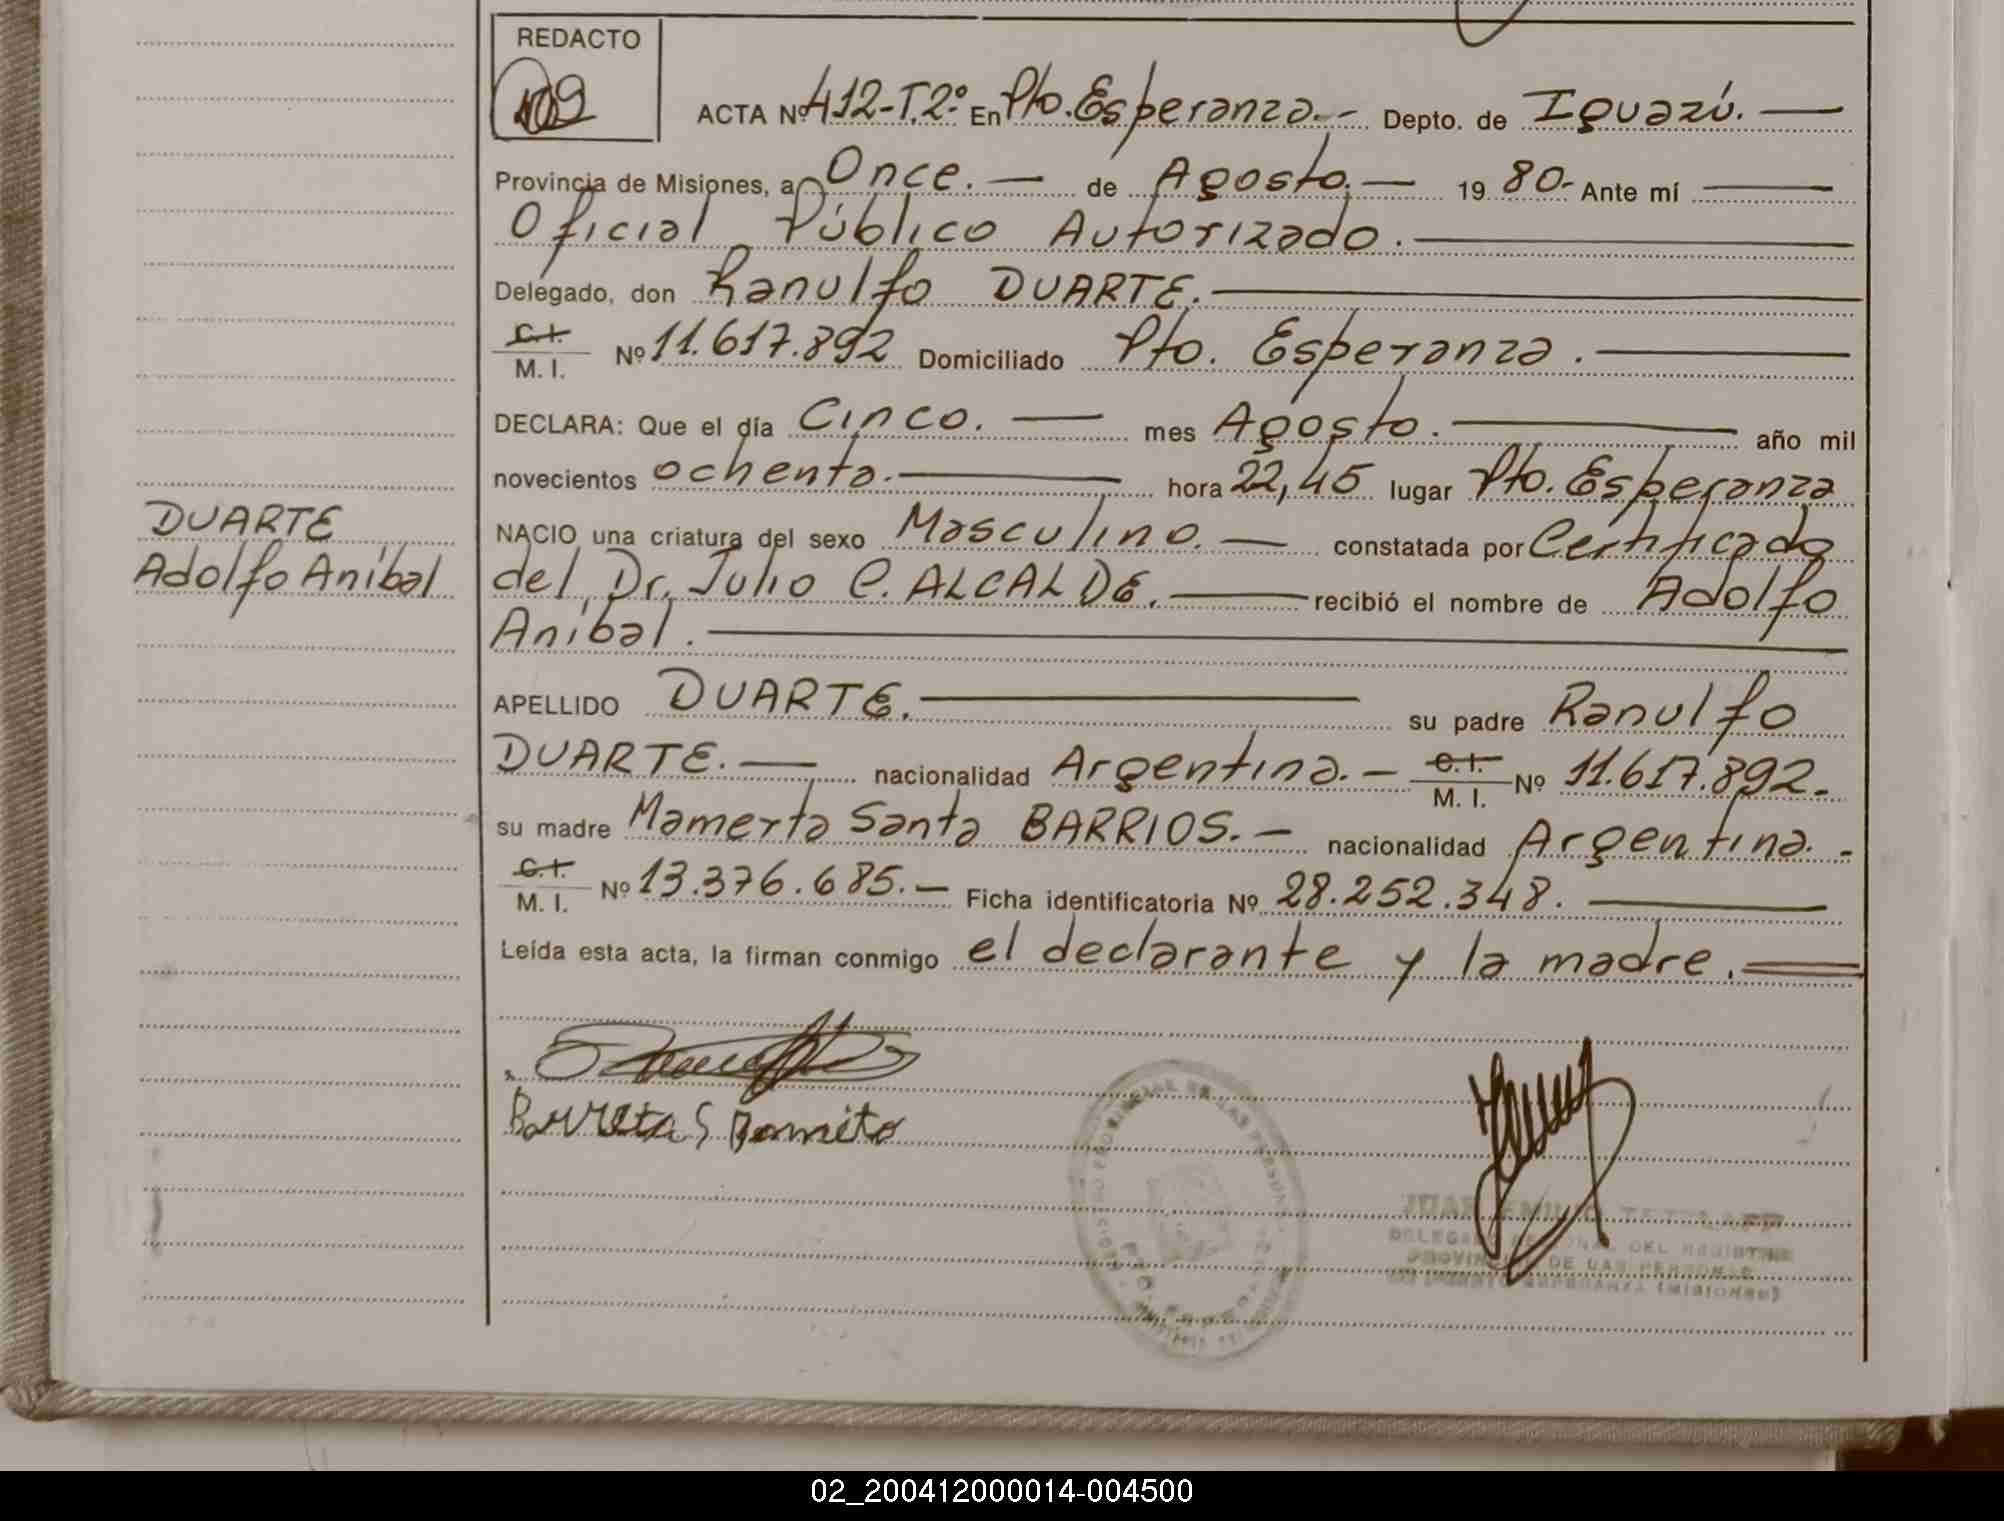 REDACTO
ACTA Nº 412-T.2º En Pto. Esperanza.- Depto. de Iguazú.
Provincia de Misiones, a Once. de Agosto. 19 80- Ante mí
Oficial Público Autorizado.
Delegado, don Ranulfo DUARTE.
C.I.
M. I. Nº 11.617.892 Domiciliado Pto. Esperanza.
DECLARA: Que el día Cinco. mes Agosto. año mil
novecientos ochenta. hora 22,45 lugar Pto. Esperanza
NACIO una criatura del sexo Masculino. constatada por Certificado
del Dr. Julio C. ALCALDE. recibió el nombre de Adolfo
Aníbal.
DUARTE
Adolfo Aníbal
APELLIDO DUARTE. su padre Ranulfo
DUARTE. nacionalidad Argentina.- C.I.
M. I. Nº 11.617.892.
su madre Mamerta Santa BARRIOS.- nacionalidad Argentina.-
C.I.
M. I. Nº 13.376.685.- Ficha identificatoria Nº 28.252.348.
Leída esta acta, la firman conmigo el declarante y la madre.
JUAN EMILIO
DELEGADO REGIONAL DEL REGISTRO
PROVINCIAL DE LAS PERSONAS
DE PUERTO ESPERANZA (MISIONES)
02_200412000014-004500